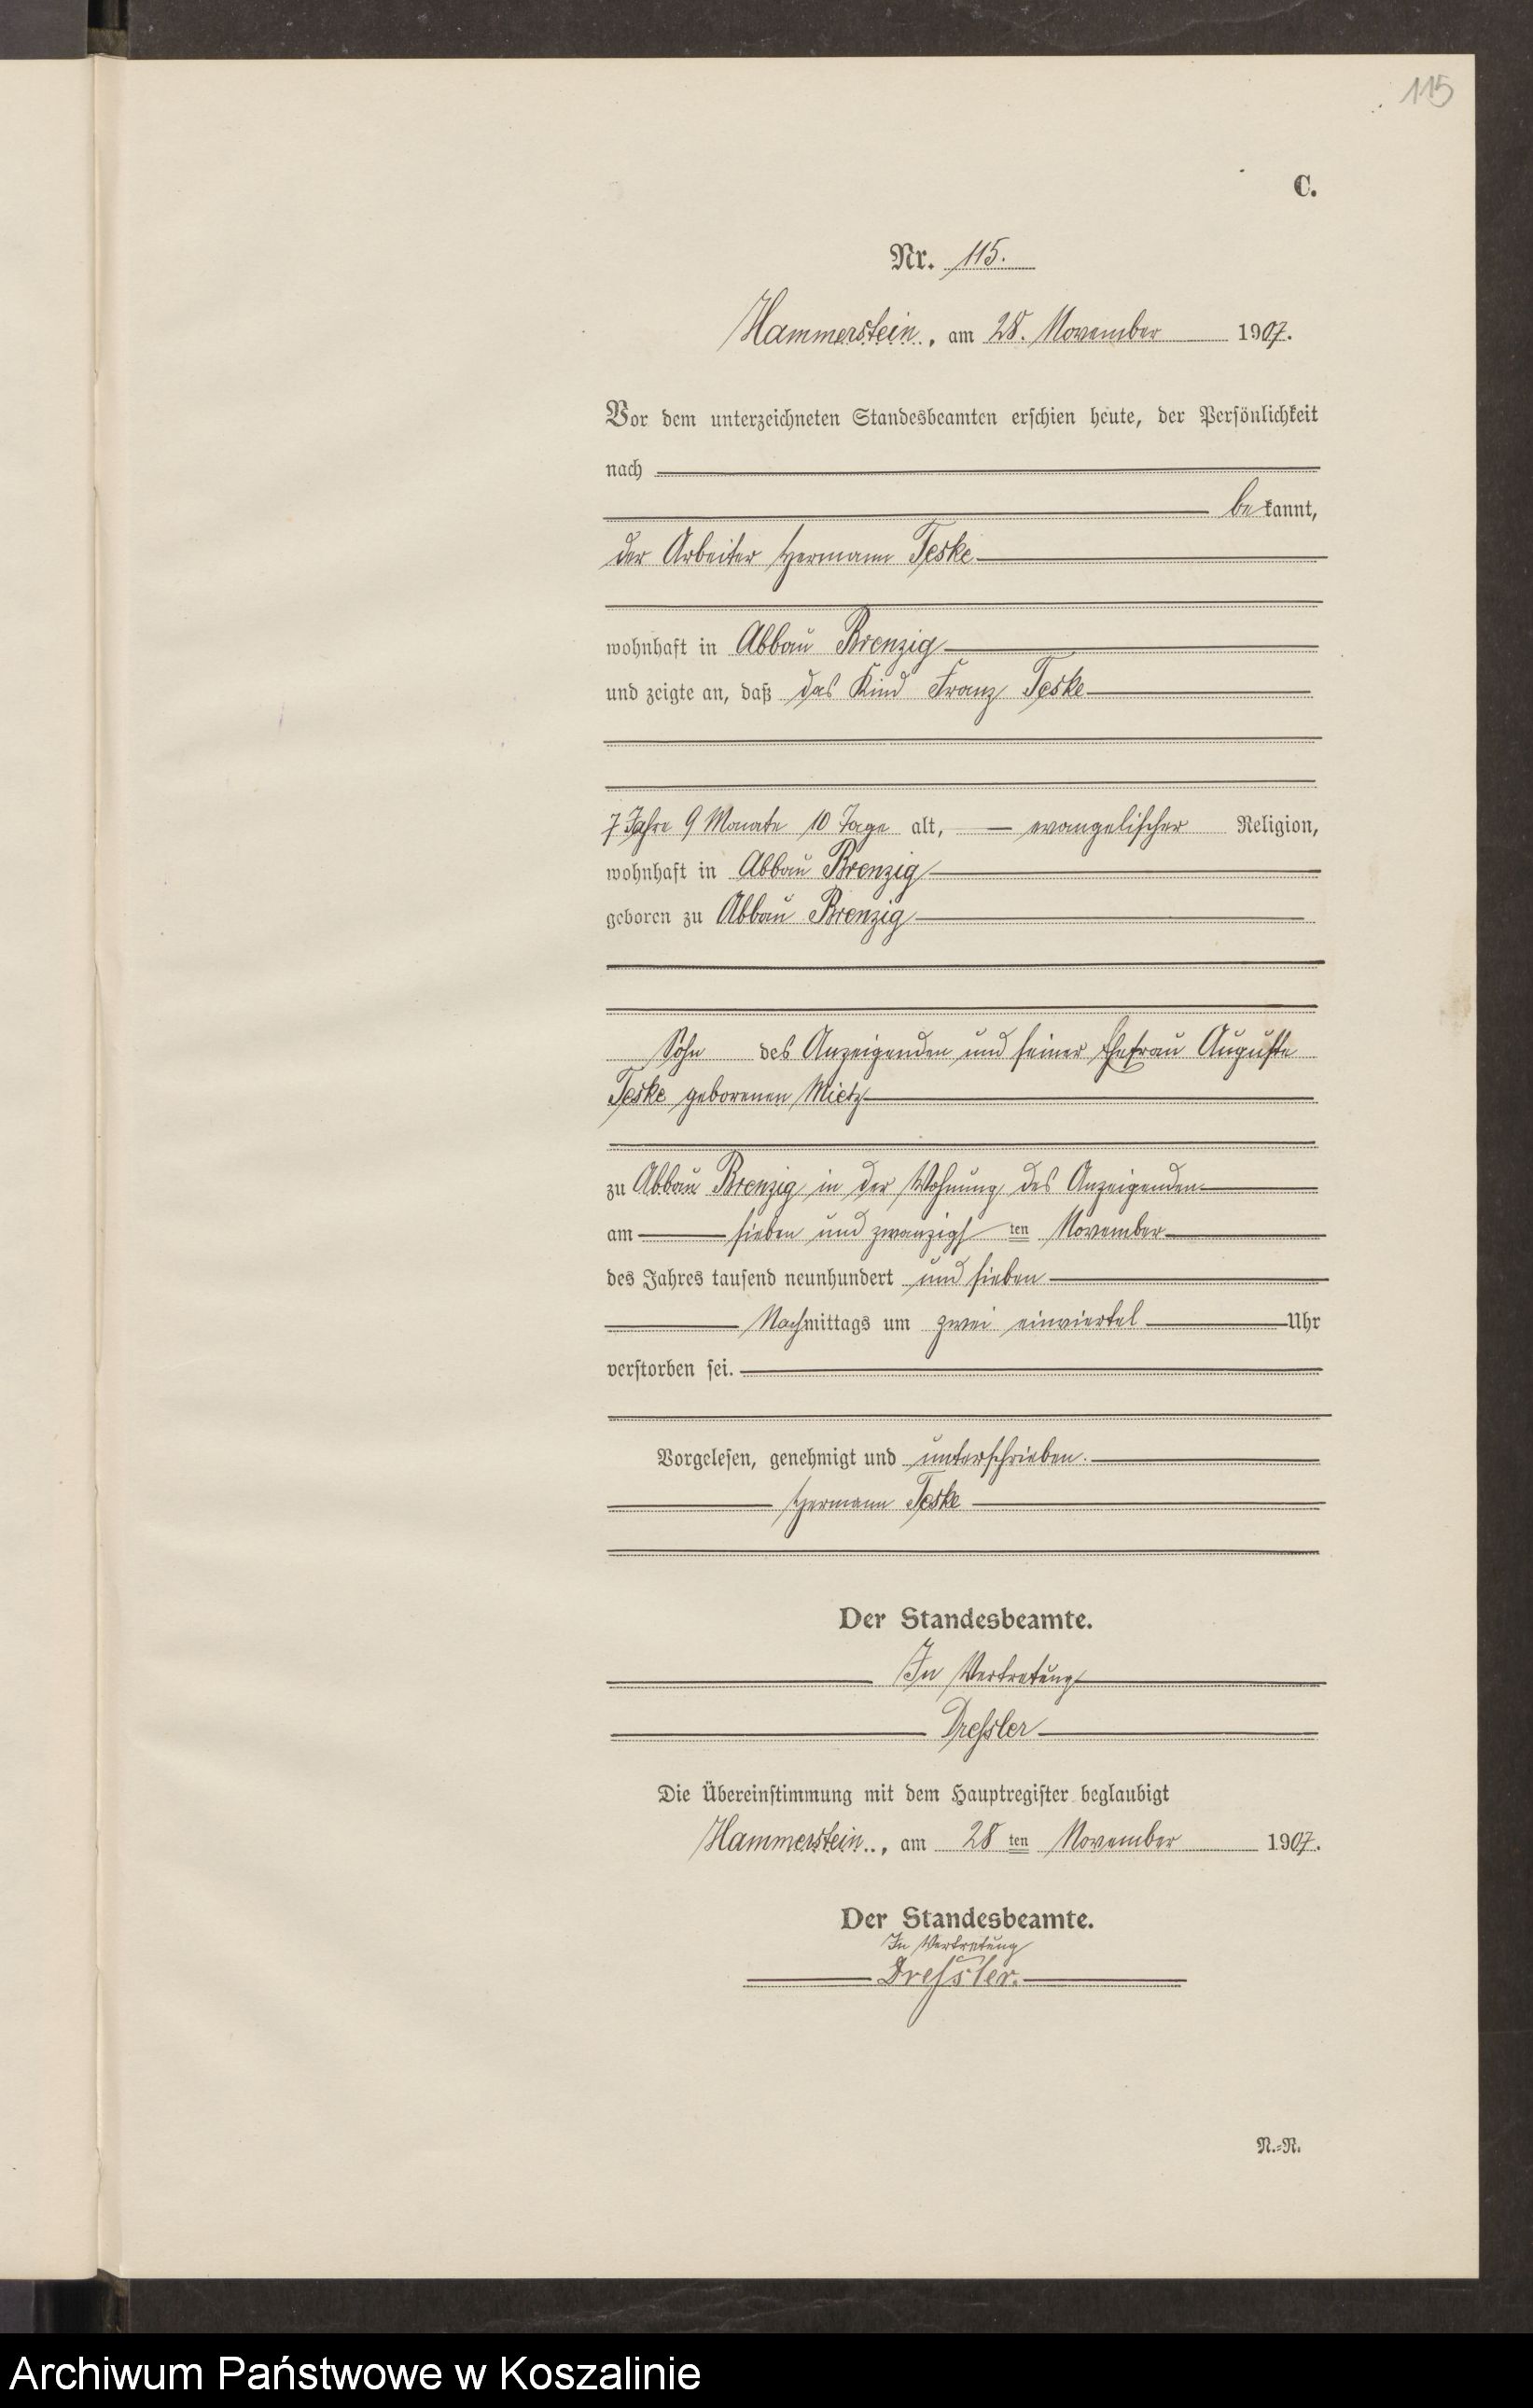 115
C.
Nr. 115.
Hammerstein, am 28. November 1907.
Vor dem unterzeichneten Standesbeamten erschien heute, der Persönlichkeit
nach
bekannt,
der Arbeiter Hermann Teske
wohnhaft in Abbau Brenzig
und zeigte an, daß das Kind Franz Teske
7 Jahre 9 Monate 10 Tage alt, evangelischer Religion,
wohnhaft in Abbau Brenzig
geboren zu Abbau Brenzig
Sohn des Anzeigenden und seiner Ehefrau Auguste
Teske geborenen Mietz
zu Abbau Brenzig in der Wohnung des Anzeigenden
am sieben und zwanzigsten November
des Jahres tausend neunhundert und sieben
Nachmittags um zwei einviertel Uhr
verstorben sei.
Vorgelesen, genehmigt und unterschrieben.
Hermann Teske
Der Standesbeamte.
In Vertretung
Dreßler
Die Übereinstimmung mit dem Hauptregister beglaubigt
Hammerstein, am 28ten November 1907.
Der Standesbeamte.
In Vertretung
Dreßler.
N.=R.
Archiwum Państwowe w Koszalinie